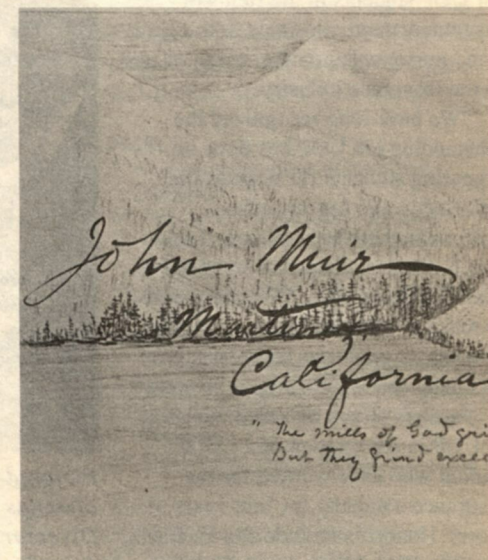 John Muir
Martinez
California
" The mills of God gri
But they grind excee